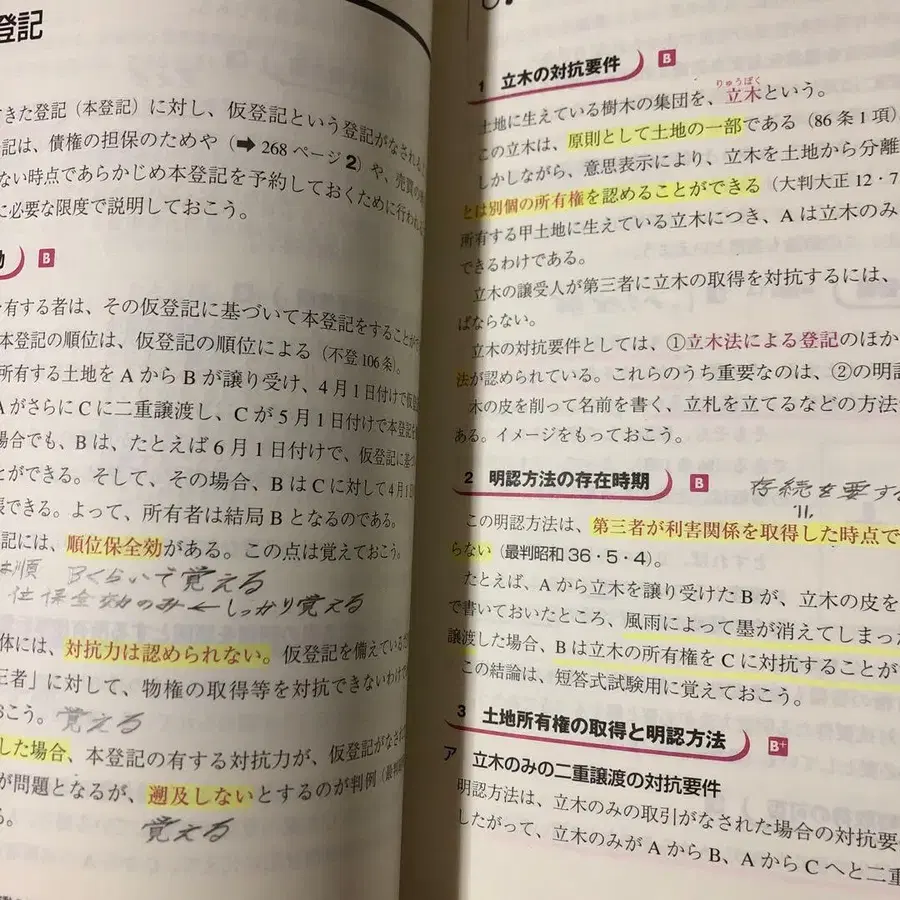 登記
きた登記（本登記）に対し、仮登記という登記がなされ
記は、債権の担保のためや（➡268ページ2）や、売買の
ない時点であらかじめ本登記を予約しておくために行われ
に必要な限度で説明しておこう。
B
有する者は、その仮登記に基づいて本登記をすることが
本登記の順位は、仮登記の順位による（不登106条）。
所有する土地をAからBが譲り受け、4月1日付けで仮
AがさらにCに二重譲渡し、Cが5月1日付けで本登記
場合でも、Bは、たとえば6月1日付けで、仮登記に基
とができる。そして、その場合、BはCに対して4月1
張できる。よって、所有者は結局Bとなるのである。
記には、順位保全効がある。この点は覚えておこう。
順 Bくらいで覚える
位保全効のみ←しっかり覚える
体には、対抗力は認められない。仮登記を備えている
三者」に対して、物権の取得等を対抗できないわけで
おこう。覚える
した場合、本登記の有する対抗力が、仮登記がなされ
が問題となるが、遡及しないとするのが判例（最判
る。
覚える
1 立木の対抗要件 B
土地に生えている樹木の集団を、立木という。
りゅうぼく
この立木は、原則として土地の一部である（86条1項）
しかしながら、意思表示により、立木を土地から分離
とは別個の所有権を認めることができる（大判大正12・7
所有する甲土地に生えている立木につき、Aは立木のみ
できるわけである。
立木の譲受人が第三者に立木の取得を対抗するには、
ばならない。
立木の対抗要件としては、①立木法による登記のほか
法が認められている。これらのうち重要なのは、②の明認
木の皮を削って名前を書く、立札を立てるなどの方法
ある。イメージをもっておこう。
2 明認方法の存在時期 B
存続を要する
この明認方法は、第三者が利害関係を取得した時点で
らない（最判昭和36・5・4）。
たとえば、Aから立木を譲り受けたBが、立木の皮を
で書いておいたところ、風雨によって墨が消えてしまった
譲渡した場合、Bは立木の所有権をCに対抗することが
この結論は、短答式試験用に覚えておこう。
3 土地所有権の取得と明認方法 B+
ア 立木のみの二重譲渡の対抗要件
明認方法は、立木のみの取引がなされた場合の対抗要
したがって、立木のみがAからB、AからCへと二重